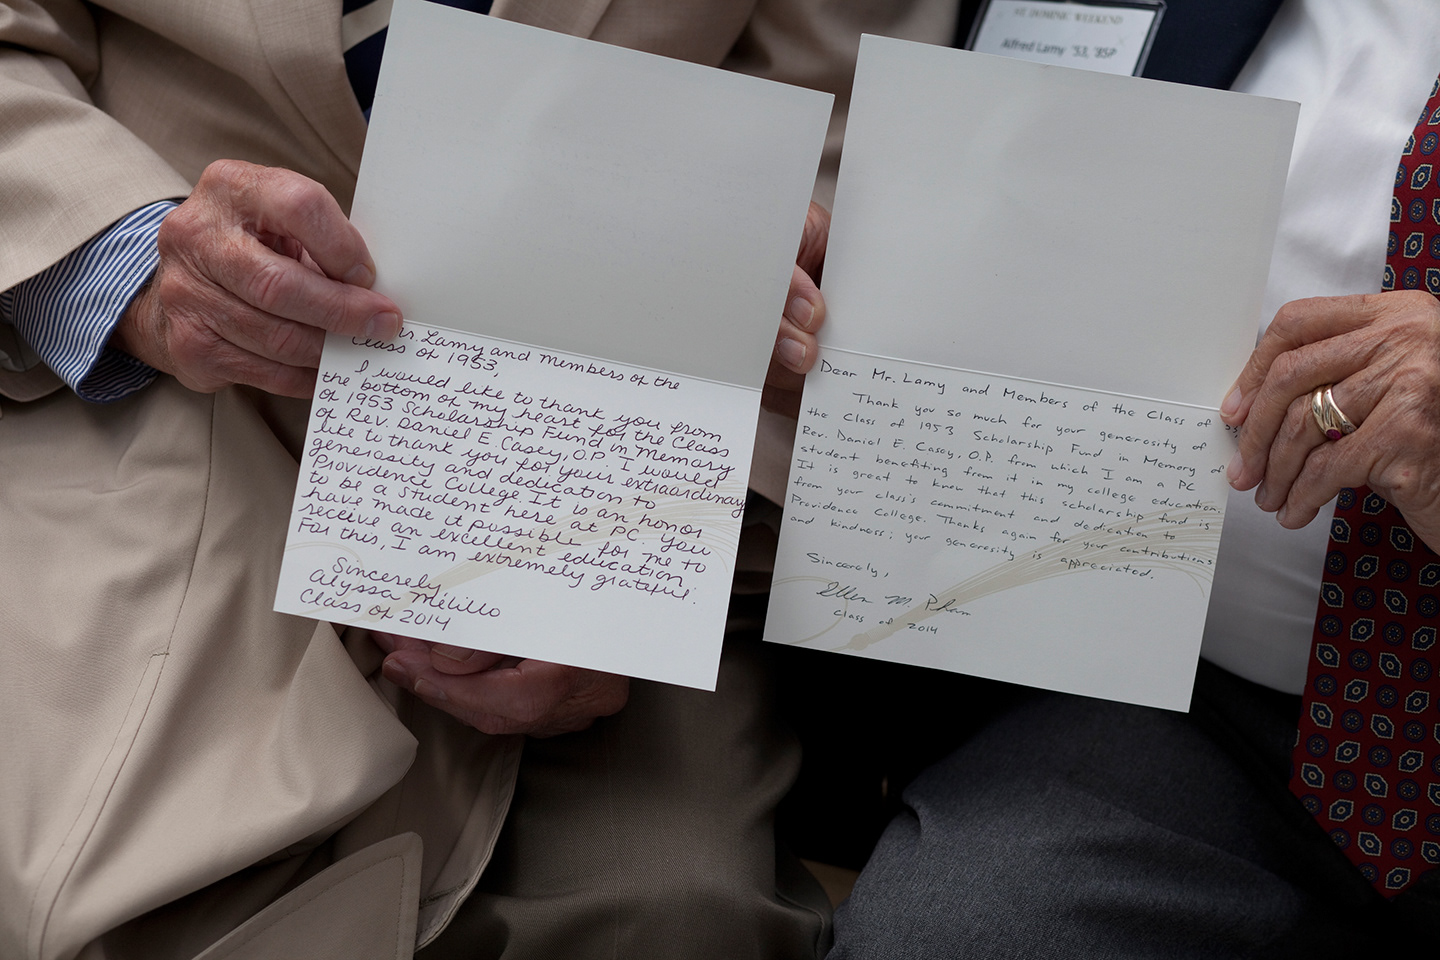 ST. DOMINIC WEEKEND
Alfred Lamy '53, '85P
Mr. Lamy and Members of the
Class of 1953,
I would like to thank you from
the bottom of my heart for the Class
of 1953 Scholarship Fund in Memory
of Rev. Daniel E. Casey, O.P. I would
like to thank you for your extraordinary
generosity and dedication to
Providence College. It is an honor
to be a student here at PC. You
have made it possible for me to
receive an excellent education.
For this, I am extremely grateful.
Sincerely
Alyssa Melillo
Class of 2014
Dear Mr. Lamy and Members of the Class of
Thank you so much for your generosity of
the Class of 1953 Scholarship Fund in Memory of
Rev. Daniel E. Casey, O.P. from which I am a PC
student benefiting from it in my college education.
It is great to know that this scholarship fund is
from your class's commitment and dedication to
Providence College. Thanks again for your contributions
and kindness; your generosity is appreciated.
Sincerely,
Ellen M. Pham
Class of 2014